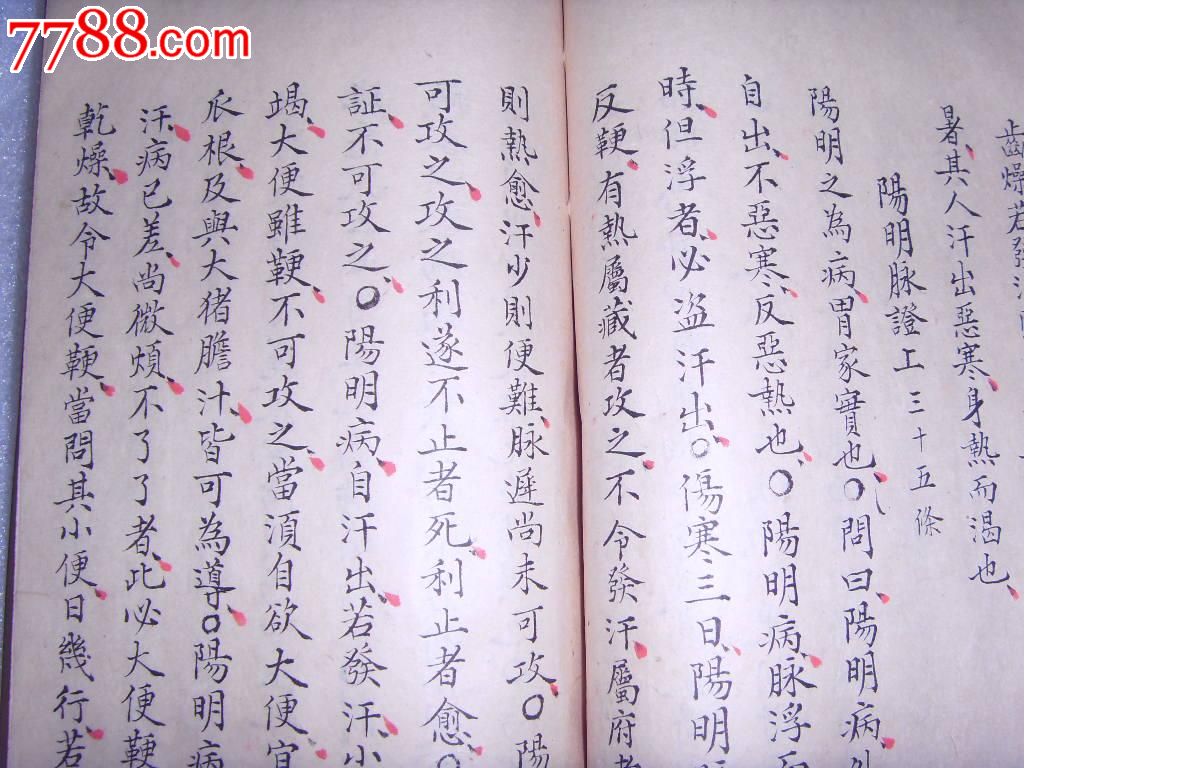 7788.com
齒燥若發汗
暑、其人汗出惡寒、身熱而渴也、
陽明脉證上 三十五條
陽明之為病、胃家實也、〇問曰、陽明病、外
自出、不惡寒、反惡熱也、〇陽明病、脉浮而
時、但浮者、必盜汗出、〇傷寒三日、陽明
反鞕、有熱屬藏者攻之、不令發汗、屬府者
則熱愈、汗少則便難、脉遲尚未可攻、〇陽
可攻之、攻之利遂不止者死、利止者愈、〇
証、不可攻之、〇陽明病、自汗出、若發汗、小
竭、大便雖鞕、不可攻之、當須自欲大便、宜
瓜根、及與大猪膽汁、皆可為導、〇陽明病
汗、病已差、尚微煩、不了了者、此必大便鞕
乾燥、故令大便鞕、當問其小便、日幾行、若